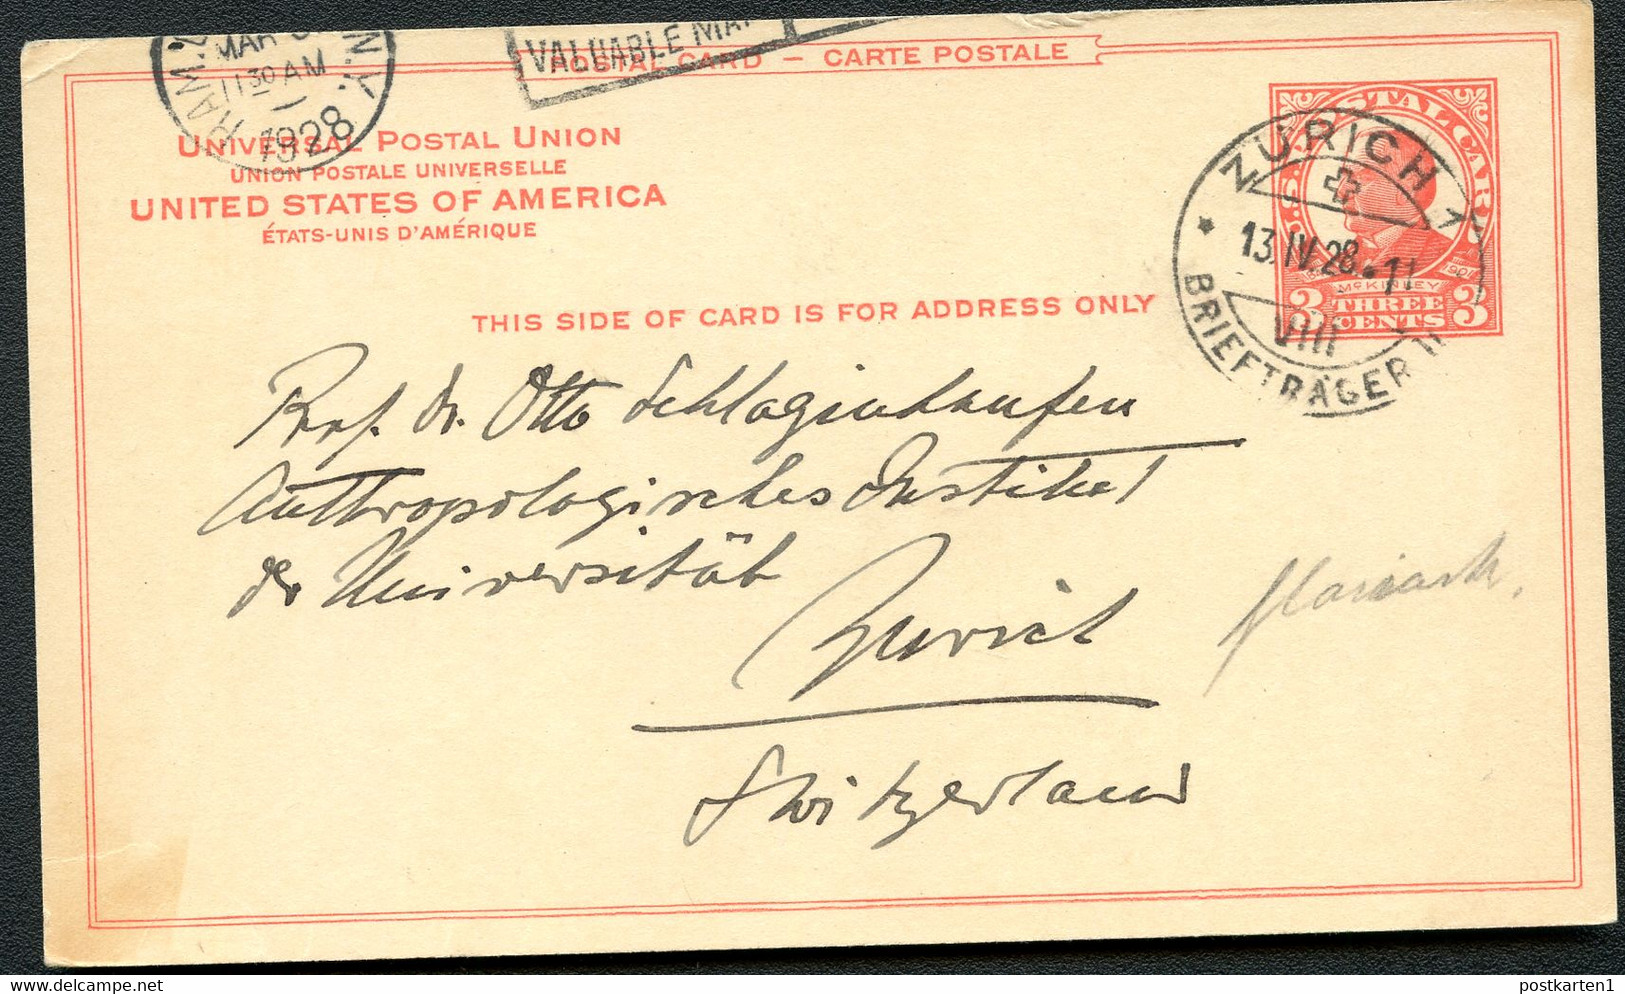 HAM.
N.Y.
MAR
11 30 AM
1928
VALUABLE MAI
POSTAL CARD — CARTE POSTALE
UNIVERSAL POSTAL UNION
UNION POSTALE UNIVERSELLE
UNITED STATES OF AMERICA
ÉTATS-UNIS D'AMÉRIQUE
THIS SIDE OF CARD IS FOR ADDRESS ONLY
U.S. POSTAL CARD
1901
McKINLEY
3 THREE CENTS 3
ZÜRICH 7
13.IV.28.11
VIII
BRIEFTRÄGER
Prof. Dr. Otto Schlaginhaufen
Anthropologisches Institut
der Universität
Zurich
Switzerland
postkarten1